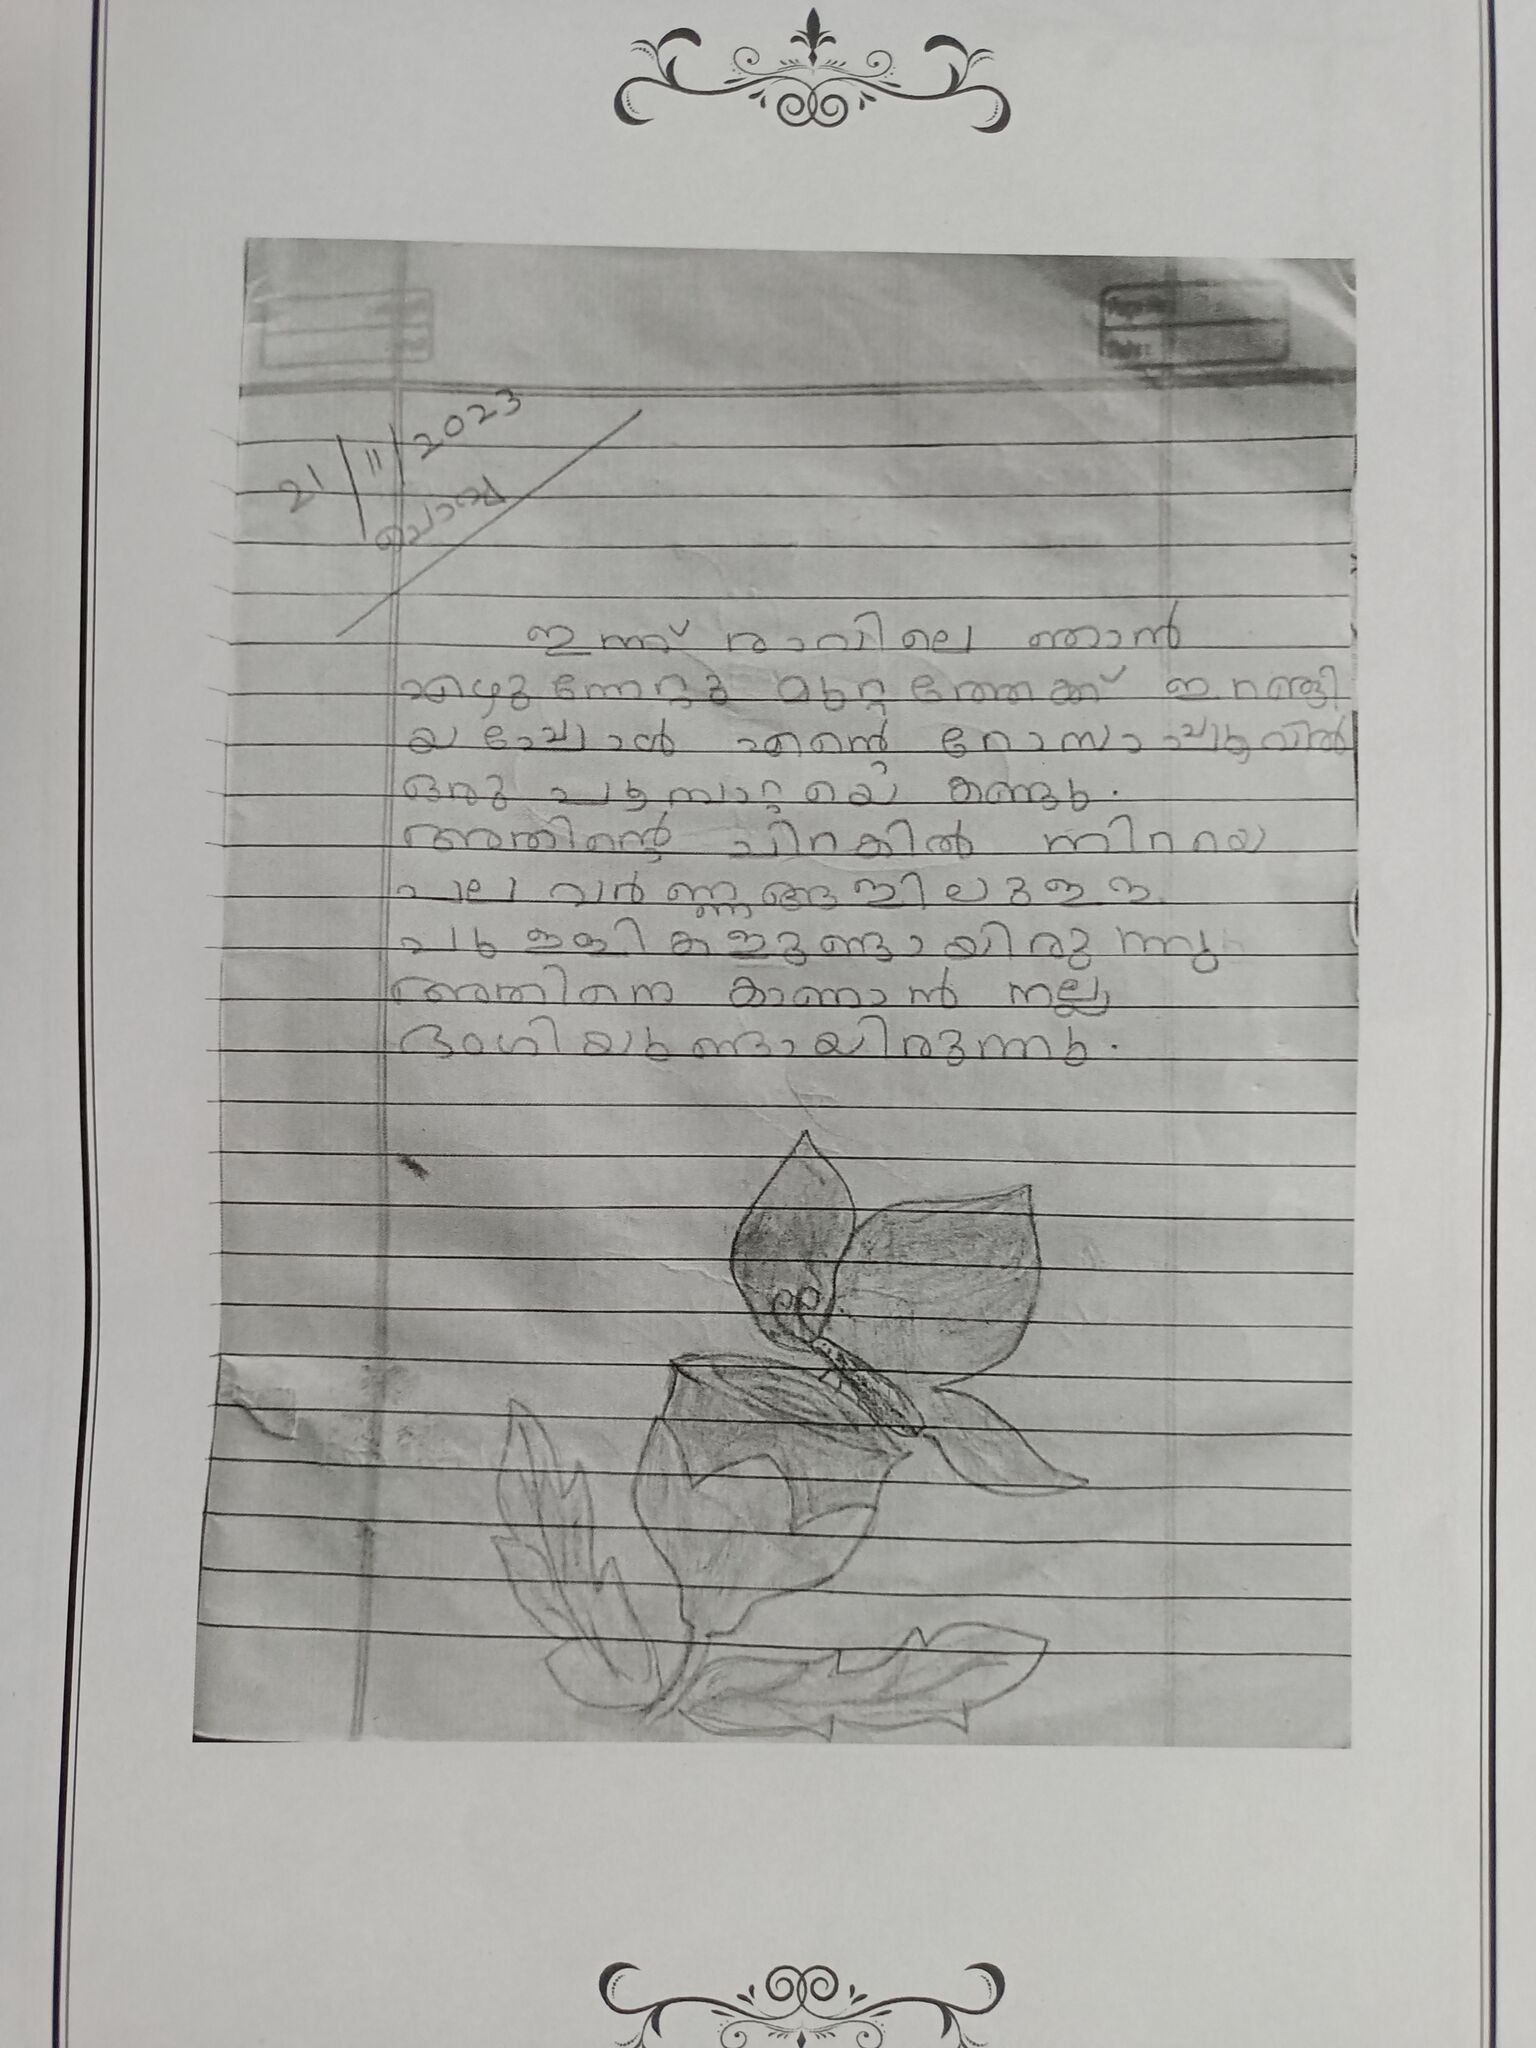 21/11/2023
ചൊവ്വ
ഇന്ന് രാവിലെ ഞാൻ
എഴുന്നേറ്റു മുറ്റത്തേക്ക് ഇറങ്ങി
യപ്പോൾ എന്റെ റോസാപ്പൂവിൽ
ഒരു പൂമ്പാറ്റയെ കണ്ടു.
അതിന്റെ ചിറകിൽ നിറയെ
പല വർണ്ണങ്ങളിലുള്ള
പുള്ളികളുണ്ടായിരുന്നു
അതിനെ കാണാൻ നല്ല
ഭംഗിയുണ്ടായിരുന്നു.